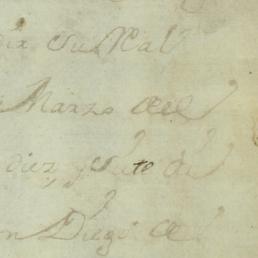 dix su Real
Marzo del
diez y siete de
n Diego de